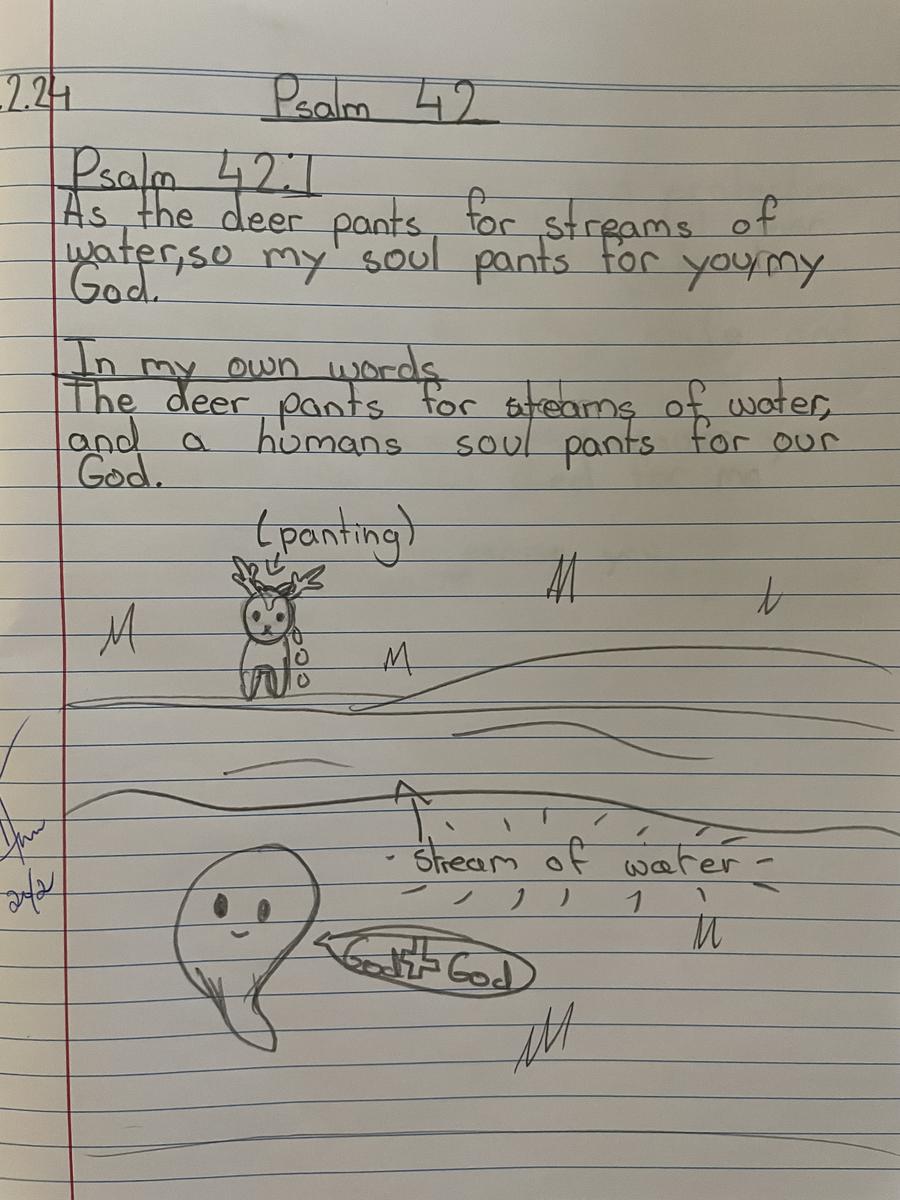 .2.24
Psalm 42
Psalm 42:1
As the deer pants for streams of
water,so my soul pants for you,my
God.
In my own words
The deer pants for steams of water,
and a humans soul pants for our
God.
(panting)
stream of water
God God
24/2